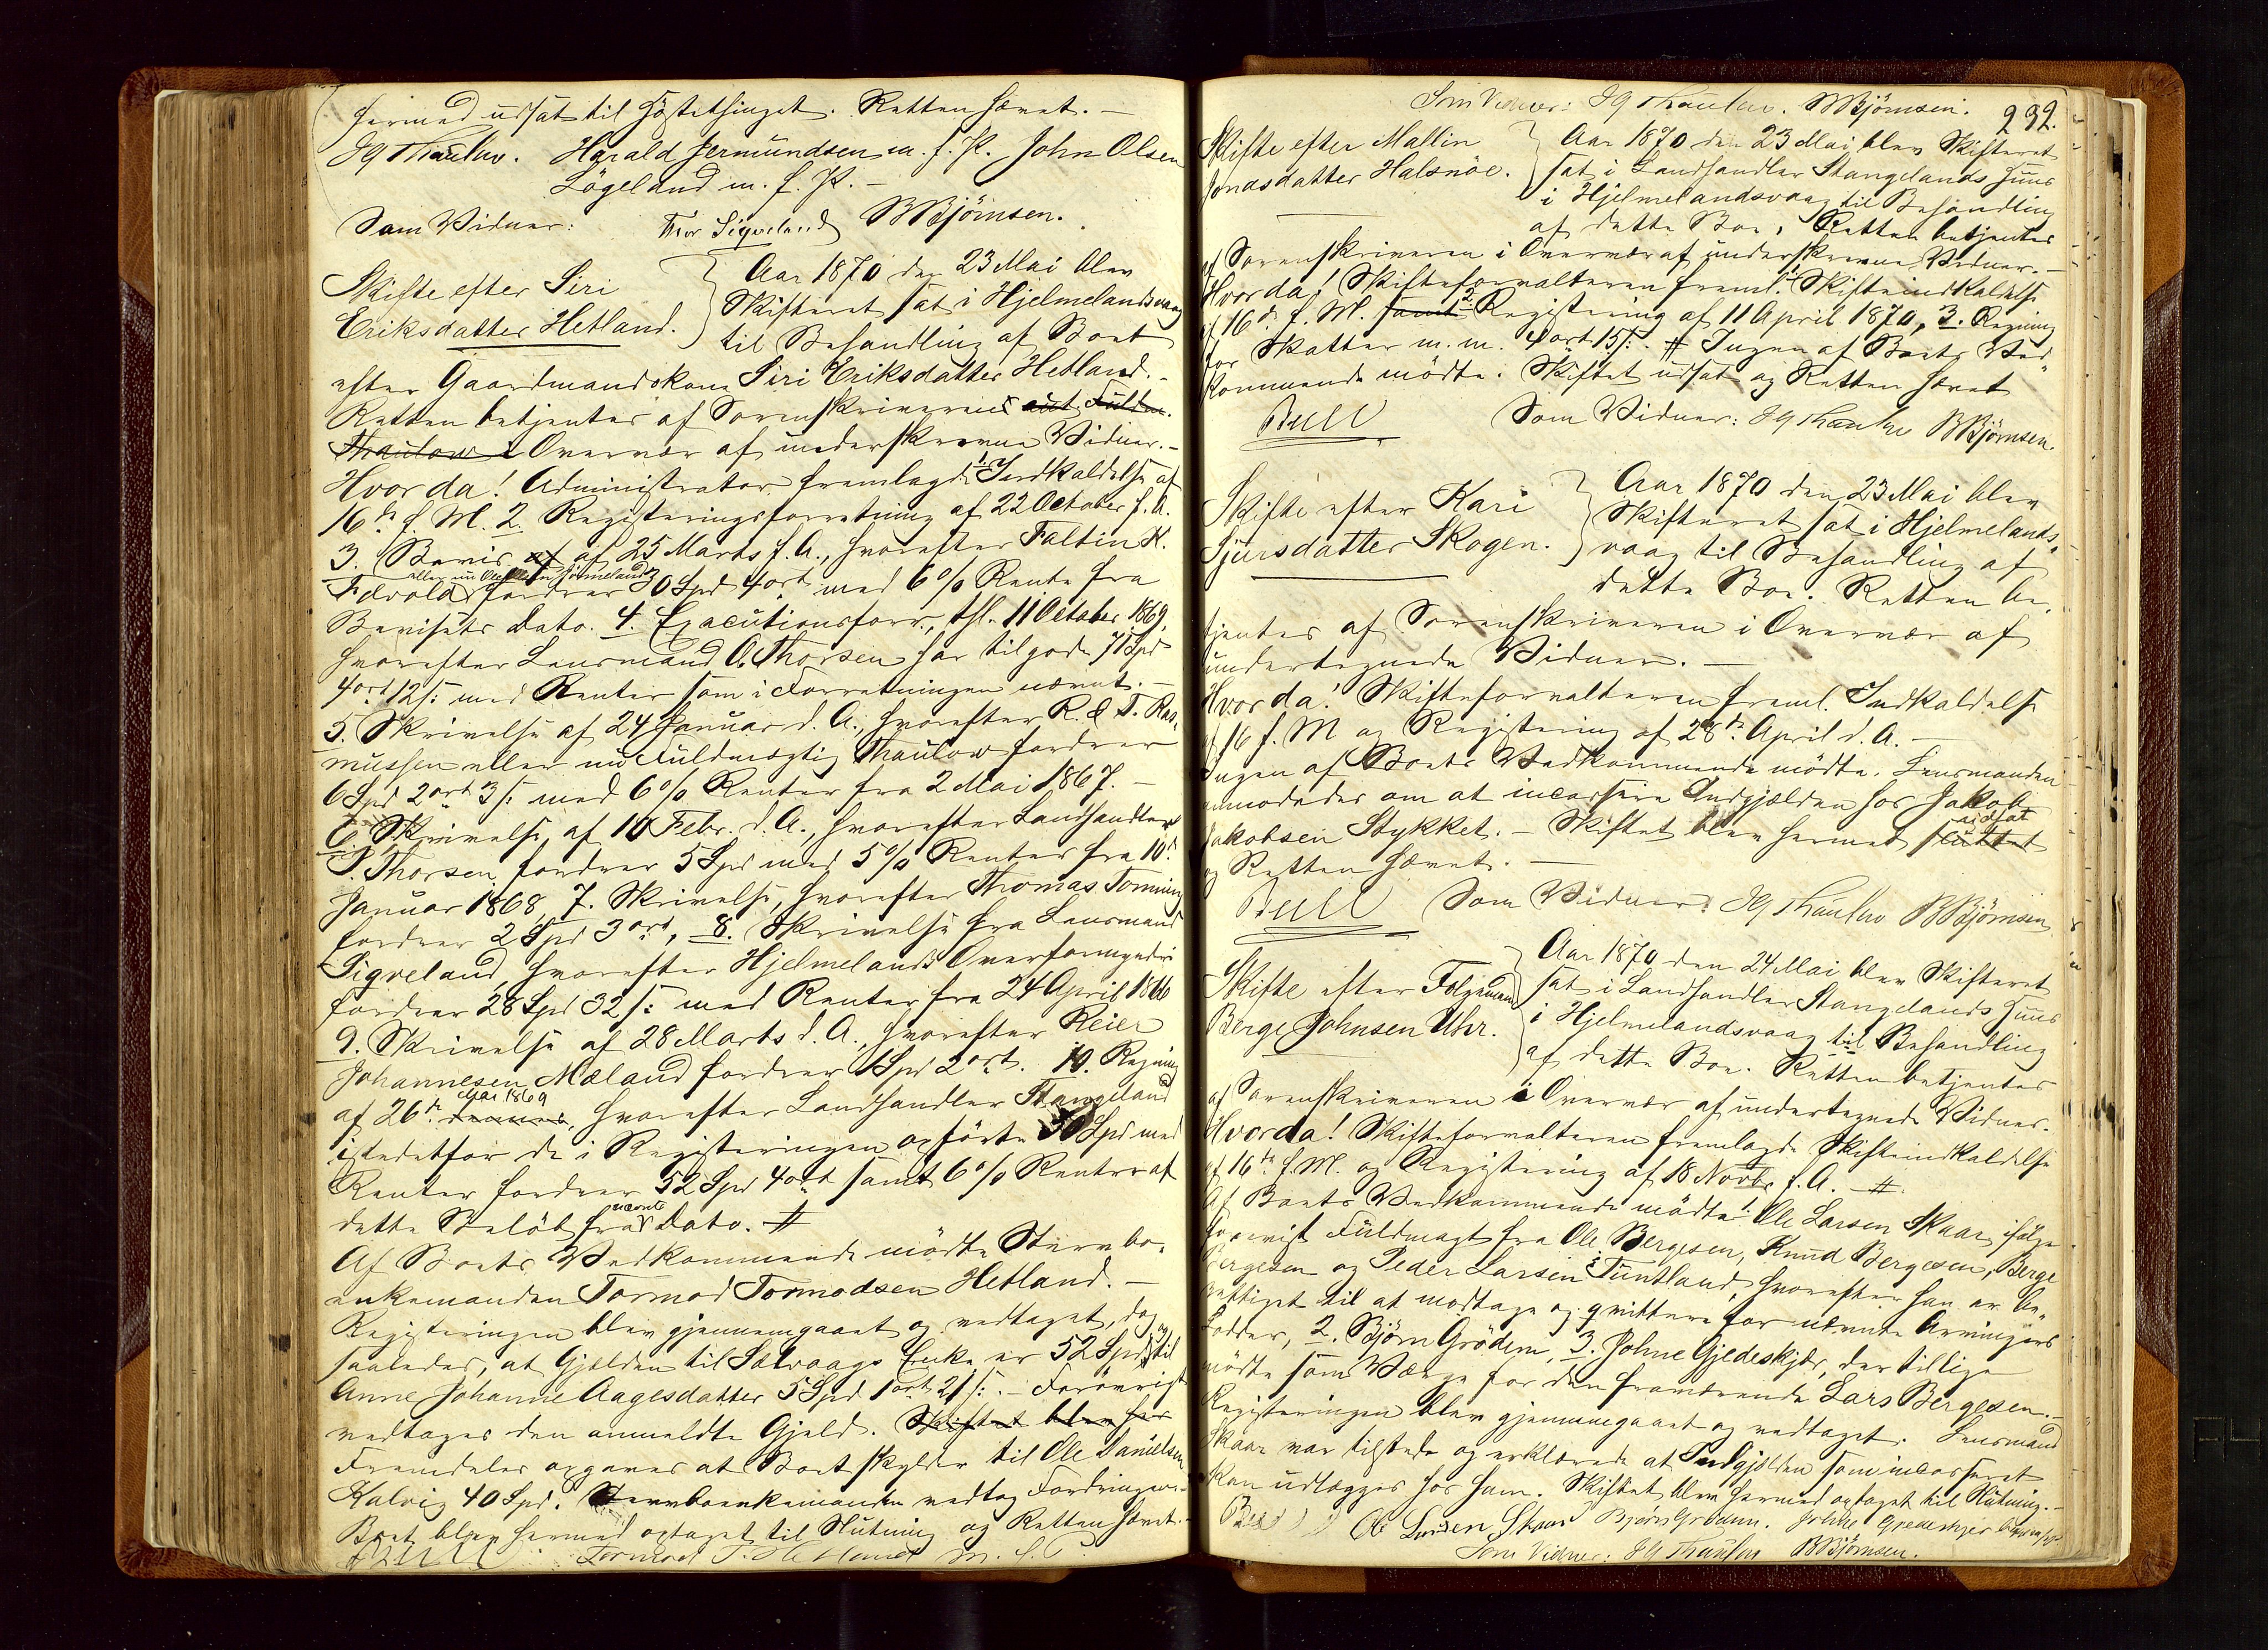 hermed udsat til Høstethinget. Retten hævet. –
JgThaulow. Harald Jermundsen m. f. P. John Olsen
Løgeland m. f. P. –
Som Vidner: Thor Sigveland BBjörnsen.
Skifte efter Siri
Eriksdatter Hetland.
Aar 1870 den 23 Mai blev
Skifteret sat i Hjelmelandsvaag
til Behandling af Boet
efter Gaardmandskone Siri Eriksdatter Hetland. –
Retten betjentes af Sorenskriveren aut. Fuldm.
Thaulow i Overvær af underskrevne Vidner. –
Hvorda! Administrator fremlagde 1. Indkaldelse af
16de f. M. 2. Registeringsforretning af 22 October f. A.
3. Bevis af af 25 Marts f. A., hvorefter Faltin K.
eller nu Hjelmeland
Fævold fordrer 30 Spd 4 ort med 6 % Rente fra
Bevisets Dato. 4. Executionsforr., thl. 11 October 1869,
hvorefter Lensmand O. Thorsen har tilgode 71 Spd
4 ort 12 s: med Renter som i Forretningen nævnt. –
5. Skrivelse af 24 Januar d. A., hvorefter R. & T. Ras-
mussen eller nu Fuldmægtig Thaulow fordrer
6 Spd 2 ort 3 s: med 6 % Renter fra 2 Mai 1867. –
6. Skrivelse af 10 Febr. d. A., hvorefter Landhandler
P. Thorsen fordrer 5 Spd med 5 % Renter fra 10de
Januar 1868, 7. Skrivelse, hvorefter Thomas Tomning
fordrer 2 Spd 3 ort, 8. Skrivelse fra Lensmand
Sigveland, hvorefter Hjelmelands Overformynderi
fordrer 28 Spd 32 s: med Renter fra 24 April 1866
9. Skrivelse af 28 Marts d. A., hvorefter Reier
Johannesen Mæland fordrer 1 Spd 2 ort. 10. Regning
Mai 1869
af 26de dennes, hvorefter Landhandler Stangeland
istedetfor de i Registeringen opførte 50 Spd med
Renter fordrer 52 Spd 4 ort samt 6 % Renter af
nævnte
dette Beløb fra Dato. #
Af Boets Vedkommende mødte Stervbo-
enkemanden Tormod Tormodsen Hetland. –
Registeringen blev gjennemgaaet og vedtaget, dog
saaledes, at Gjælden til Sælvaags Enke er 52 Spd, og til
Anne Johanne Aagesdatter 5 Spd 1 ort 21 s: – Forøvrigt
vedtages den anmeldte Gjeld. Skiftet blev her
Fremdeles opgaves at Boet skylder til Ole Danielsen
Kalvig 40 Spd. Stervboenkemanden vedtog Fordringen. –
Boet blev hermed optaget til Slutning og Retten hævet. –
Bull Tormod T. Hetland m. f. P.
Som Vidner: JgThaulow. BBjörnsen.
232.
Skifte efter Mallin
Jonasdatter Halsnöe.
Aar 1870 den 23 Mai blev Skifteret
sat i Landhandler Stangelands Huus
i Hjelmelandsvaag til Behandling
af dette Boe. Retten betjentes
af Sorenskriveren i Overvær af underskrevne Vidner. –
Hvorda! Skifteforvalteren freml. 1. Skifteindkaldelse
af 16de f. M. samt 2. Registering af 11 April 1870, 3. Regning
for Skatter m. m. 4 ort 15 s: # Ingen af Boets Ved-
kommende mødte. Skiftet udsat og Retten hævet
Bull Som Vidner: JgThaulow BBjörnsen.
Skifte efter Kari
Sjursdatter Skogen.
Aar 1870 den 23 Mai blev
Skifteret sat i Hjelmelands-
vaag til Behandling af
dette Boe. Retten be-
tjentes af Sorenskriveren i Overvær af
undertegnede Vidner. –
Hvorda! Skifteforvalteren freml. Indkaldelse
af 16 f. M og Registering af 28de April d. A. –
Ingen af Boets Vedkommende mødte. Lensmanden
anmodedes om at incassere Indgjælden hos Jakob
udsat
Jakobsen Stykket. – Skiftet blev hermed sluttet
og Retten hævet. –
Bull Som Vidner: JgThaulow BBjörnsen
Skifte efter Folgemand
Berge Johnsen Uhr.
Aar 1870 den 24 Mai blev Skifteret
sat i Landhandler Stangelands Huus
i Hjelmelandsvaag til Behandling
af dette Boe. Retten betjentes
af Sorenskriveren i Overvær af undertegnede Vidner.
Hvorda! Skifteforvalteren fremlagde Skifteindkaldelse
af 16de f. M. og Registering af 18 Novbr f. A. #
Af Boets Vedkommende mødte 1. Ole Larsen Skaar, ifølge
forevist Fuldmagt fra Ole Bergesen, Knud Bergesen, Berge
Bergesen og Peder Larsen Tuntland, hvorefter han er be-
rettiget til at modtage og qvittere for nævnte Arvingers
Lodder, 2. Bjørn Grödem, 3. Johne Gjedeskjær, der tillige
mødte som Værge for den fraværende Lars Bergesen. –
Registeringen blev gjennemgaaet og vedtaget. Lensmand
Skaar var tilstede og erklærede at Indgjælden som incasseret
kan udlægges hos ham. Skiftet blev hermed optaget til Slutning. –
Bull Ole Larsen Skaar Bjørn Grödem. Johne Gjedeskjær
Som Vidner: JgThaulow BBjörnsen.